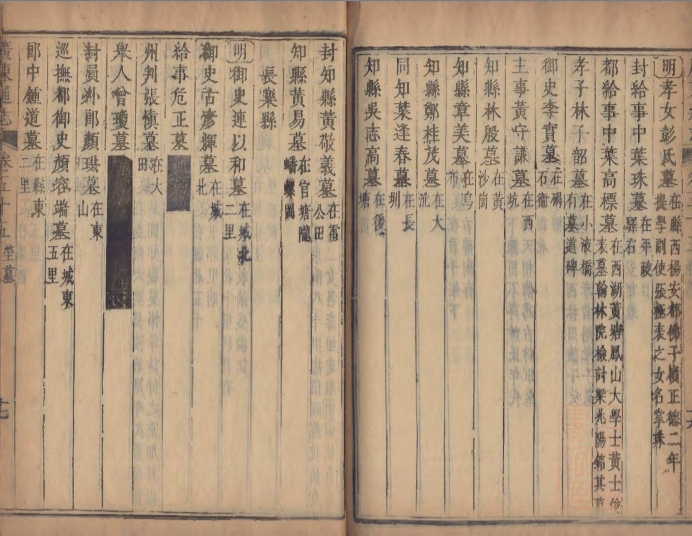 明孝女彭氏墓在縣西楊安都佛子嶺正德二年提學副使張極表之女名韋珠
封給事中葉珠墓在平政驛右
都給事中葉高標墓在西湖黃塘鳳山大學士黃士俊表墓翰林院檢討梁兆陽銘其
孝子林子韶墓在小液橋有墓道碑
御史李寶墓在碣石衛
主事黃守謙墓在西坑
知縣林殷墓在黃沙崗
知縣章美墓在烏
知縣鄭桂茂墓在大
同知葉逢春墓在長圳
知縣吳志高墓在後塘
封知縣黃敬義墓在霜公田
知縣黃易墓在官塘龍蟠螺
長樂縣
明御史連以和墓在城北二里
御史古彥輝墓在城北
給事危正墓
州判張慎墓在大田
舉人曾瓊墓
封員外郎顏珙墓在東山
巡撫都御史顏容端墓在城東五里
郎中鍾道墓在縣東二里
廣東通志 卷五十五 塋墓